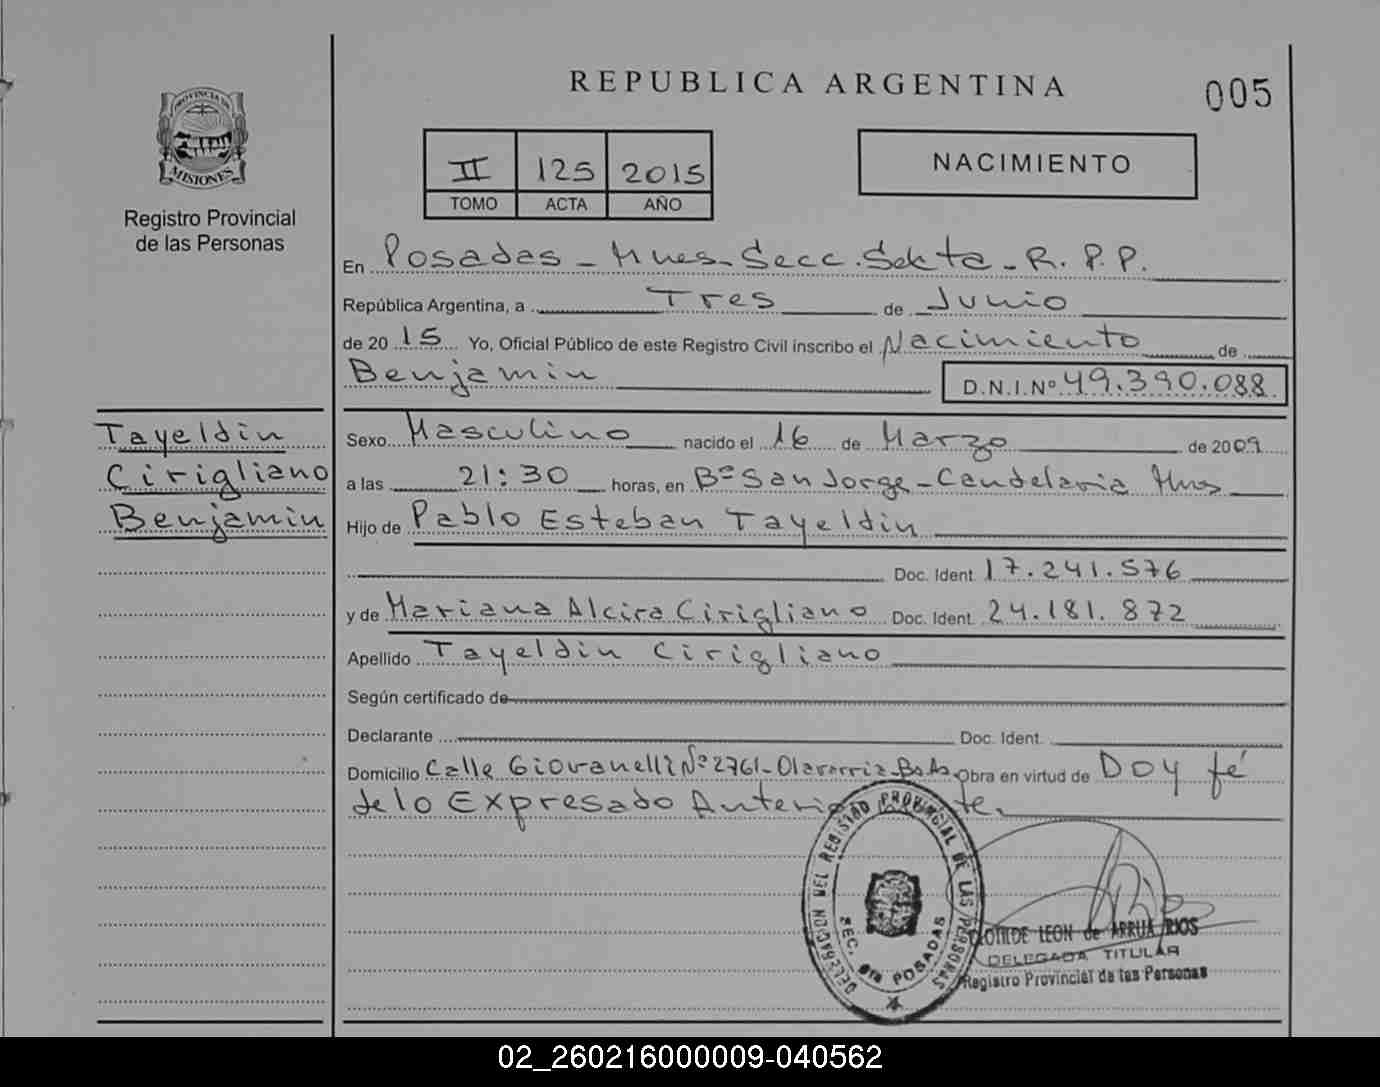 REPUBLICA ARGENTINA
005
PROVINCIA DE
MISIONES
Registro Provincial
de las Personas
II 125 2015
TOMO ACTA AÑO
NACIMIENTO
En Posadas - Mnes - Secc. Sexta - R. P. P.
República Argentina, a Tres de Junio
de 2015 Yo, Oficial Público de este Registro Civil inscribo el Nacimiento de
Benjamin D.N.I.Nº 49.390.088
Tayeldin
Cirigliano
Benjamin
Sexo Masculino nacido el 16 de Marzo de 2009
a las 21:30 horas, en Bº San Jorge - Candelaria Mnes
Hijo de Pablo Esteban Tayeldin
Doc. Ident. 17.241.576
y de Mariana Alcira Cirigliano Doc. Ident. 24.181.872
Apellido Tayeldin Cirigliano
Según certificado de
Declarante Doc. Ident.
Domicilio Calle Giovanelli Nº 2761 - Olavarria - Bs As Obra en virtud de Doy fé
de lo Expresado Anteriormente.
DELEGACION DEL REGISTRO PROVINCIAL DE LAS PERSONAS
SEC. 6ta POSADAS
CLOTILDE LEON de ARRUA RIOS
DELEGADA TITULAR
Registro Provincial de las Personas
02_260216000009-040562